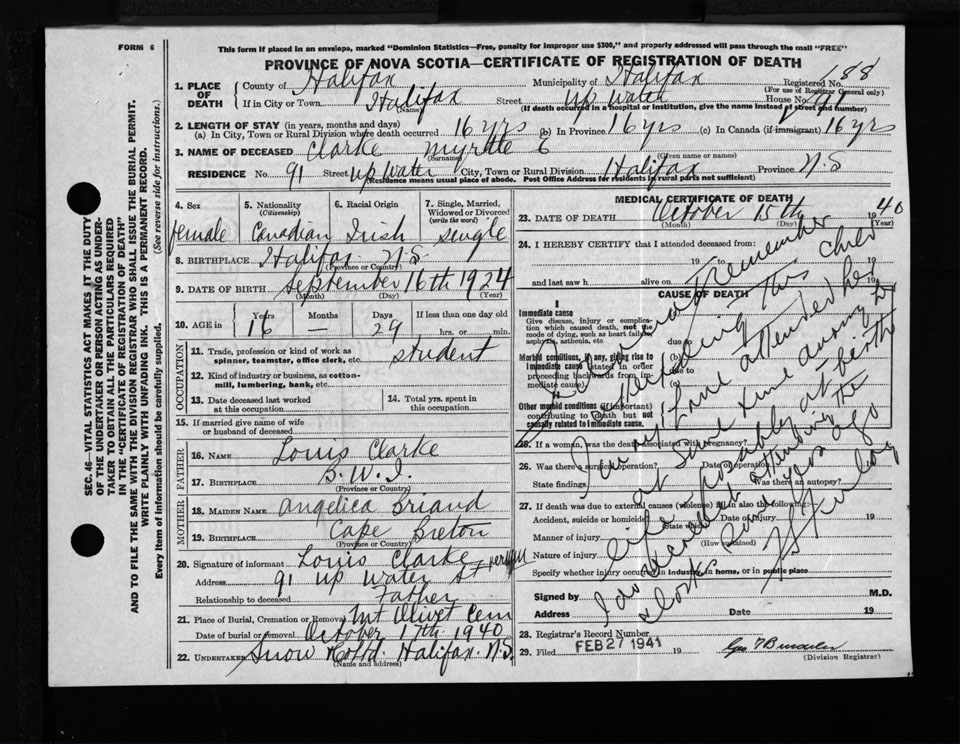 FORM 6
This form if placed in an envelope, marked "Dominion Statistics—Free, penalty for improper use $300," and properly addressed will pass through the mail "FREE"
PROVINCE OF NOVA SCOTIA—CERTIFICATE OF REGISTRATION OF DEATH
1. PLACE OF DEATH
County of Halifax Municipality of Halifax Registered No. 188
(For use of Registrar General only)
If in City or Town Halifax Street Up Water House No. 91
(Name) (If death occurred in a hospital or institution, give the name instead of street and number)
2. LENGTH OF STAY (in years, months and days)
(a) In City, Town or Rural Division where death occurred 16 yrs (b) In Province 16 yrs (c) In Canada (if immigrant) 16 yrs
3. NAME OF DECEASED Clarke Myrtle E
(Surname) (Given name or names)
RESIDENCE No. 91 Street Up Water City, Town or Rural Division Halifax Province N.S
(Residence means usual place of abode. Post Office Address for residents in rural parts not sufficient)
4. Sex female
5. Nationality (Citizenship) Canadian
6. Racial Origin Irish
7. Single, Married, Widowed or Divorced (write the word) Single
8. BIRTHPLACE Halifax N.S
(Province or Country)
9. DATE OF BIRTH September 16th 1924
(Month) (Day) (Year)
10. AGE in Years 16 Months — Days 29 If less than one day old
hrs. or min.
OCCUPATION
11. Trade, profession or kind of work as spinner, teamster, office clerk, etc. student
12. Kind of industry or business, as cotton-mill, lumbering, bank, etc.
13. Date deceased last worked at this occupation
14. Total yrs. spent in this occupation
15. If married give name of wife or husband of deceased
FATHER
16. NAME Louis Clarke
17. BIRTHPLACE B.W.I.
(Province or Country)
MOTHER
18. MAIDEN NAME Angelica Briand
19. BIRTHPLACE Cape Breton
(Province or Country)
20. Signature of informant Louis Clarke
Address 91 Up Water St
Relationship to deceased Father
21. Place of Burial, Cremation or Removal Mt Olivet Cem
Date of burial or removal October 17th 1940
22. UNDERTAKER Snow & Co Ltd. Halifax N.S
(Name and address)
MEDICAL CERTIFICATE OF DEATH
23. DATE OF DEATH October 15th 1940
(Month) (Day) (Year)
24. I HEREBY CERTIFY that I attended deceased from:
19 to 19
and last saw h alive on 19
CAUSE OF DEATH
I
Immediate cause
Give disease, injury or complication which caused death, not the mode of dying, such as heart failure, asphyxia, asthenia, etc.
due to
Morbid conditions, if any, giving rise to immediate cause (stated in order proceeding backwards from immediate cause)
Other morbid conditions (if important) contributing to death but not causally related to immediate cause.
25. If a woman, was the death associated with pregnancy?
26. Was there a surgical operation? Date of operation
State findings Was there an autopsy?
27. If death was due to external causes (violence) fill in also the following:
Accident, suicide or homicide Date of injury 19
(State which)
Manner of injury
(How sustained)
Nature of injury
Specify whether injury occurred in industry, in home, or in public place
remember
attending this child
I have attended her
at some time during her
life probably at birth
I do not recall attending the
Signed by M.D.
Address Date 19
28. Registrar's Record Number
29. Filed FEB 27 1941 19
(Division Registrar)
SEC. 46—VITAL STATISTICS ACT MAKES IT THE DUTY
OF THE UNDERTAKER OR PERSON ACTING AS UNDER-
TAKER TO OBTAIN ALL THE PARTICULARS REQUIRED
IN THE "CERTIFICATE OF REGISTRATION OF DEATH"
AND TO FILE THE SAME WITH THE DIVISION REGISTRAR WHO SHALL ISSUE THE BURIAL PERMIT.
WRITE PLAINLY WITH UNFADING INK. THIS IS A PERMANENT RECORD.
Every item of information should be carefully supplied. (See reverse side for instructions.)